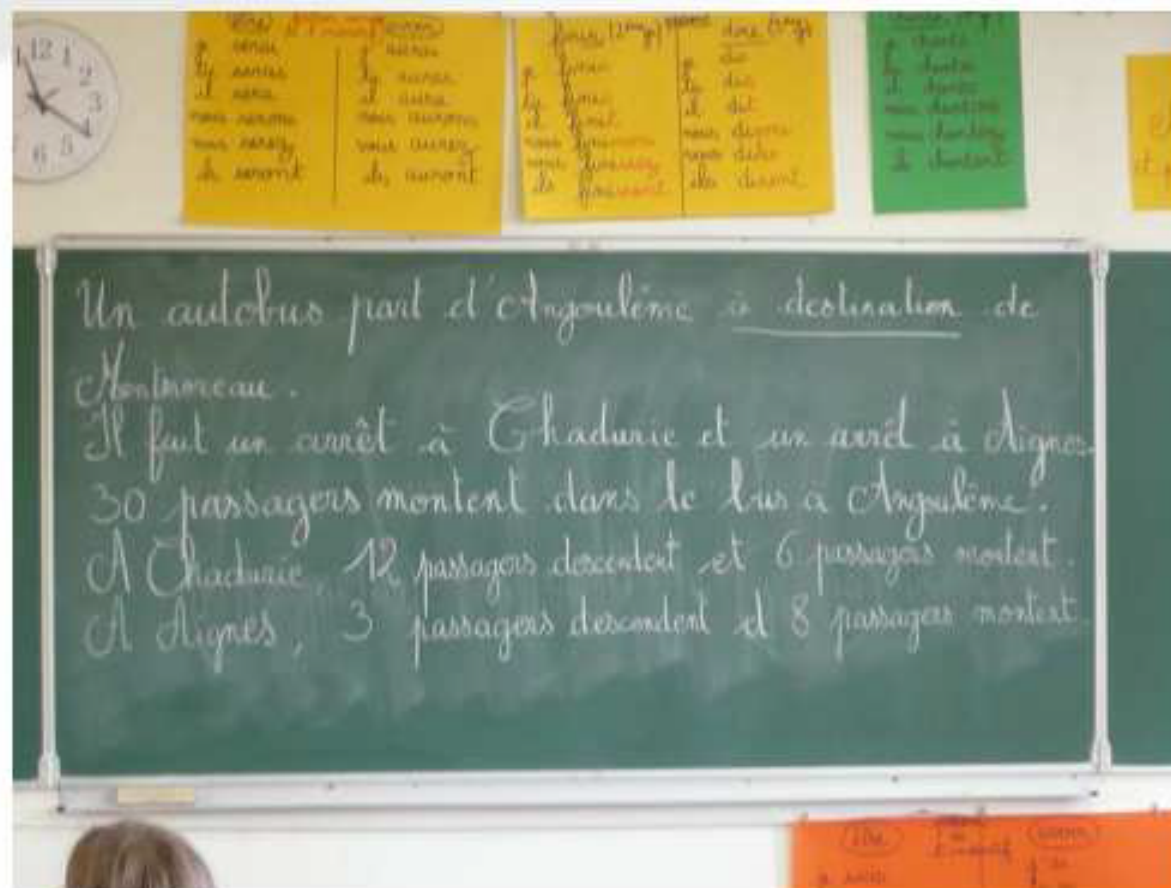 12
1
2
3
4
5
6
être
avoir
je serai
tu seras
il sera
nous serons
vous serez
ils seront
j'aurai
tu auras
il aura
nous aurons
vous aurez
ils auront
finir (2
je finis
tu finis
il finit
nous finissons
vous finissez
ils finissent
dire (3
je dis
tu dis
il dit
nous disons
vous dites
ils disent
je chante
tu chantes
il chante
nous chantons
vous chantez
ils chantent
Un autobus part d'Angoulême à destination de
Montmoreau.
Il fait un arrêt à Chadurie et un arrêt à Aignes.
30 passagers montent dans le bus à Angoulême.
A Chadurie, 12 passagers descendent et 6 passagers montent.
A Aignes, 3 passagers descendent et 8 passagers montent.
être
avoir
je suis
j'ai